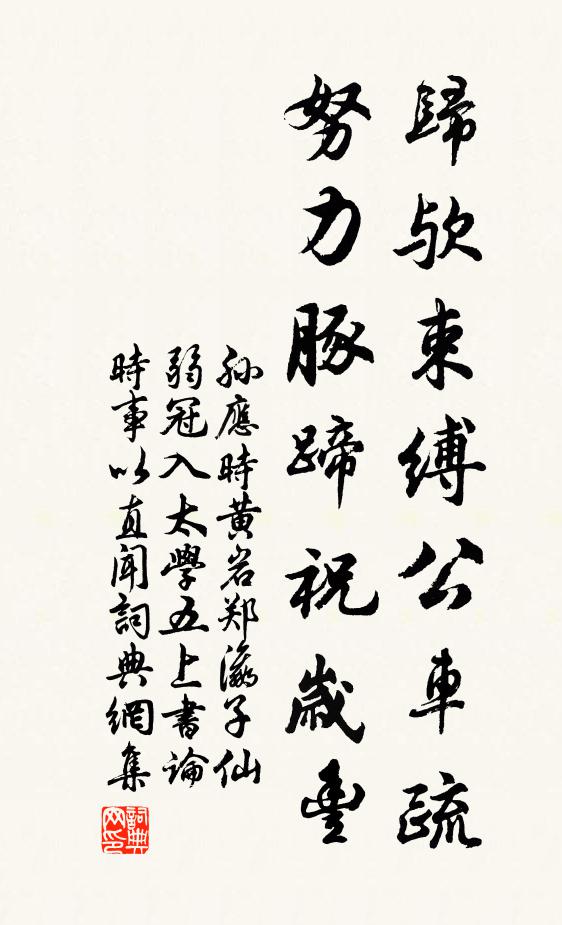 歸歟束縛公車疏
努力豚蹄祝歲豐
孙應時黄岩郑瀛子仙
弱冠入太學五上書論
時事以直闻詞典網集
詞典网印